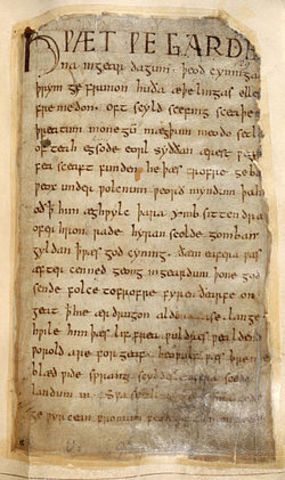 HǷÆT ǷE GARDE
na ingear dagum. þeod cyninga
þrym ge frunon huða æþelingas elle
fre medon. oft scyld scefing sceaþe
þreatum monegū mægþum meodo setl
of teah egsode eorl syððan ærest
fea sceaft funden he þæs frofre geba
ƿeox under ƿolcnum ƿeorð myndum þah
oð him æghƿylc þara ymb sittendra
ofer hron rade hyran scolde gomban
gyldan þæs god cyning. ðæm eafera ƿæs
æfter cenned geong ingeardum þone god
sende folce tofrofre fyren ðearfe on
geat þhie ær drugon aldor ase. lange
hƿile him þæs lif frea ƿuldres ƿealdend
ƿorold are for geaf. beoƿulf ƿæs breme
blæd ƿide sprang scyldes eafera scede
landum in. sceal
ge ƿyrcean fromum